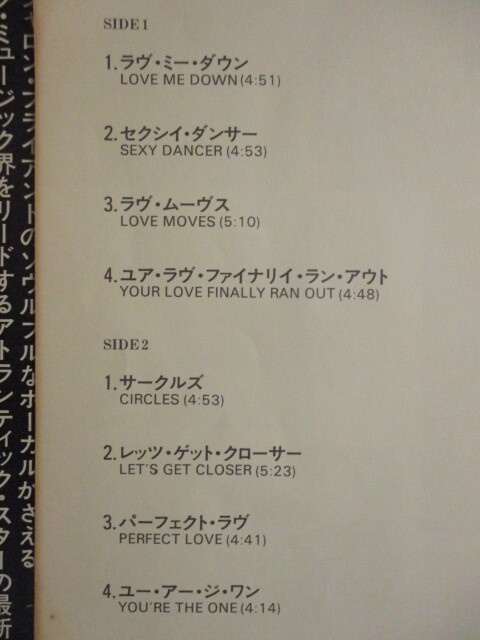 SIDE 1
1.ラヴ・ミー・ダウン
LOVE ME DOWN(4:51)
2.セクシイ・ダンサー
SEXY DANCER(4:53)
3.ラヴ・ムーヴス
LOVE MOVES(5:10)
4.ユア・ラヴ・ファイナリイ・ラン・アウト
YOUR LOVE FINALLY RAN OUT(4:48)
SIDE 2
1.サークルズ
CIRCLES(4:53)
2.レッツ・ゲット・クローサー
LET'S GET CLOSER(5:23)
3.パーフェクト・ラヴ
PERFECT LOVE(4:41)
4.ユー・アー・ジ・ワン
YOU'RE THE ONE(4:14)
ロン・ブライアントのソウルフルなボーカルがさえる
ミュージック界をリードするアトランティック・スターの最新